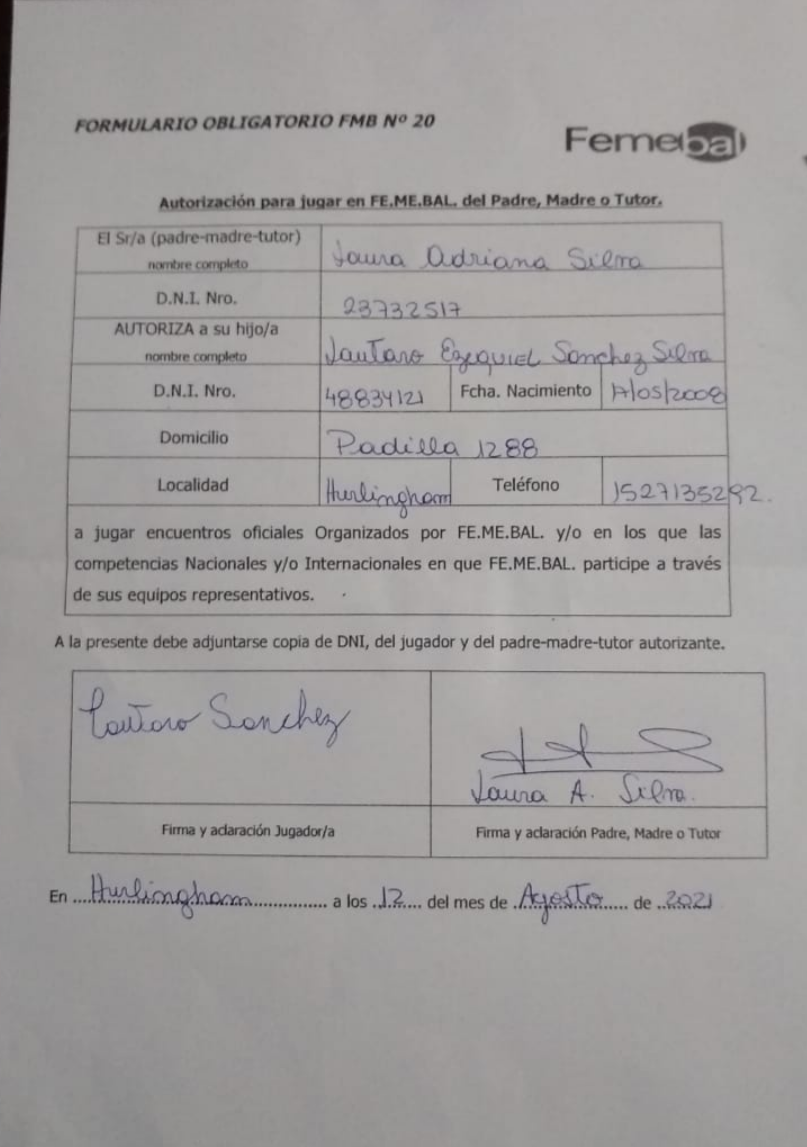 FORMULARIO OBLIGATORIO FMB Nº 20
Femebal
Autorización para jugar en FE.ME.BAL. del Padre, Madre o Tutor.
El Sr/a (padre-madre-tutor) nombre completo Laura Adriana Silva
D.N.I. Nro. 23732517
AUTORIZA a su hijo/a nombre completo Lautaro Ezequiel Sanchez Silva
D.N.I. Nro. 48834121 Fcha. Nacimiento /05/2008
Domicilio Padilla 1288
Localidad Hurlingham Teléfono 1527135292.
a jugar encuentros oficiales Organizados por FE.ME.BAL. y/o en los que las
competencias Nacionales y/o Internacionales en que FE.ME.BAL. participe a través
de sus equipos representativos.
A la presente debe adjuntarse copia de DNI, del jugador y del padre-madre-tutor autorizante.
Lautaro Sanchez
Laura A. Silva.
Firma y aclaración Jugador/a Firma y aclaración Padre, Madre o Tutor
En ....Hurlingham............... a los ..12.... del mes de .Agosto...... de ..2021